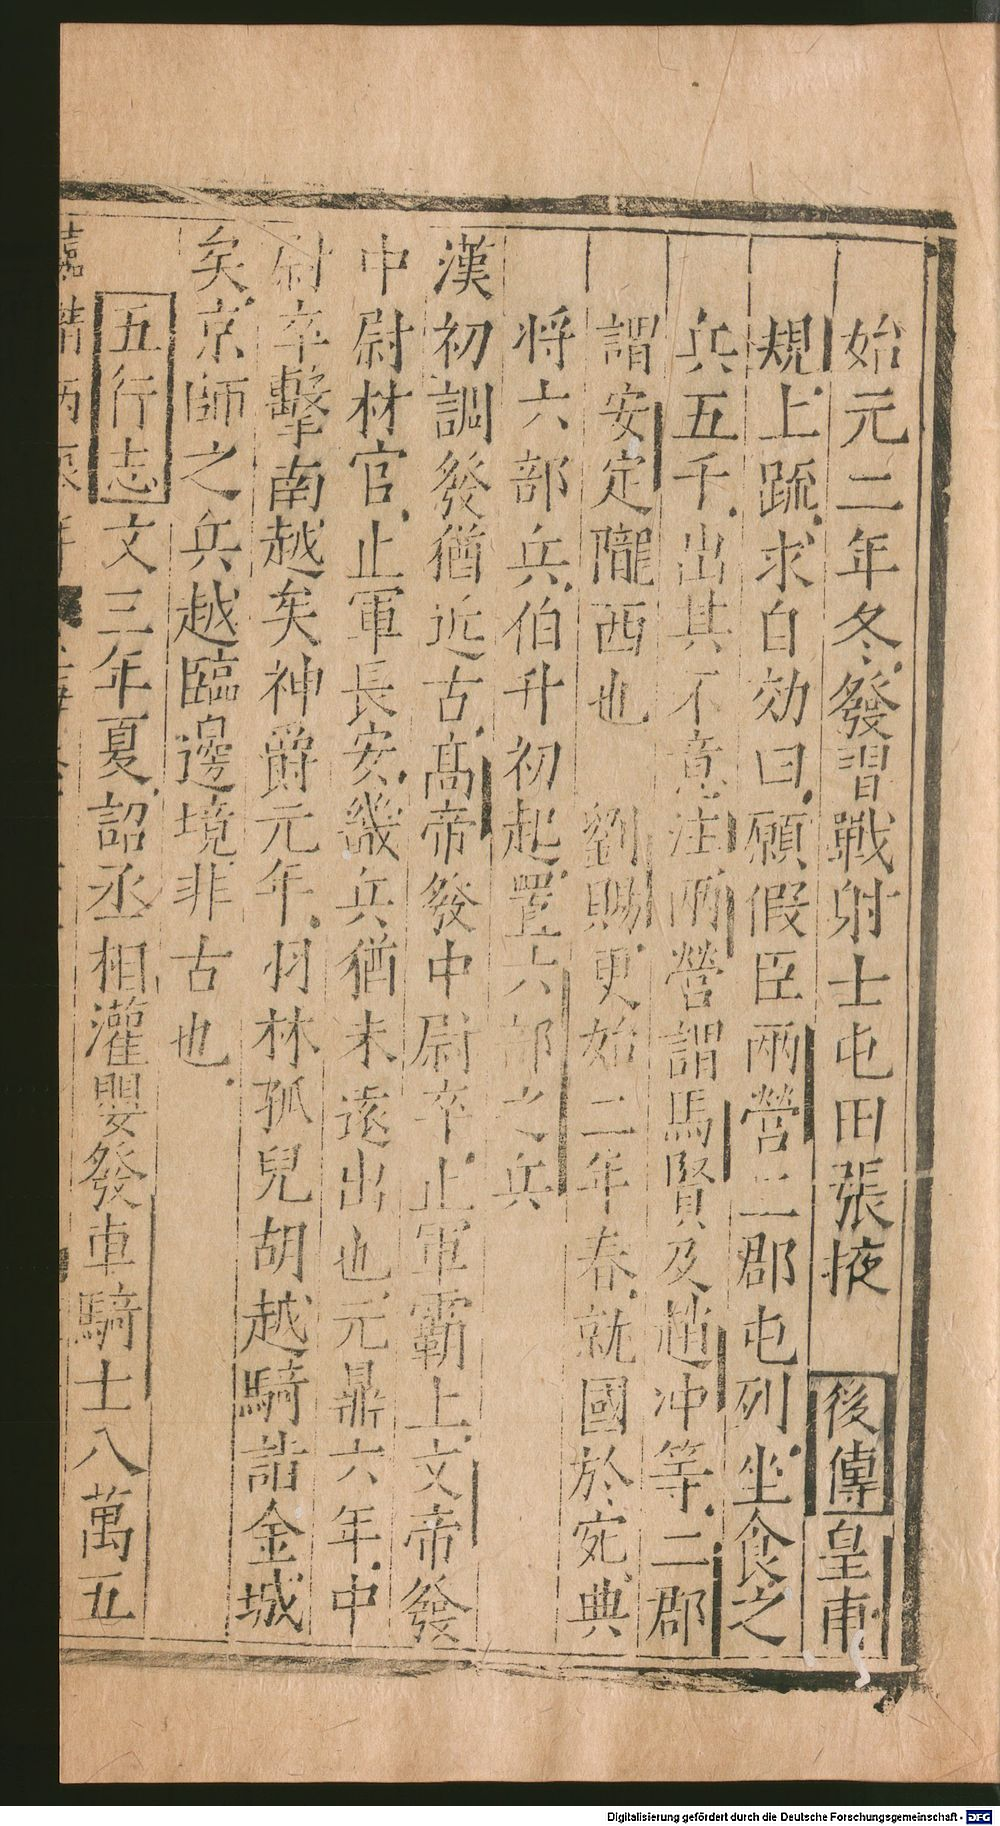 始元二年冬發習戰射士屯田張掖後傳皇甫
規上疏求自効曰願假臣兩營二郡屯列坐食之
兵五千出其不意注兩營謂馬賢及趙冲等二郡
謂安定隴西也劉賜更始二年春就國於宛典
將六部兵伯升初起置六部之兵
漢初調發猶近古高帝發中尉卒止軍霸上文帝發
中尉材官止軍長安畿兵猶未遠出也元鼎六年中
尉卒擊南越矣神爵元年羽林孤兒胡越騎詣金城
矣京師之兵越臨邊境非古也
五行志文三年夏詔丞相灌嬰發車騎士八萬五
Digitalisierung gefördert durch die Deutsche Forschungsgemeinschaft - DFG